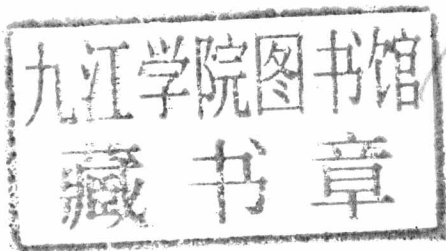 九江学院图书馆
藏书章